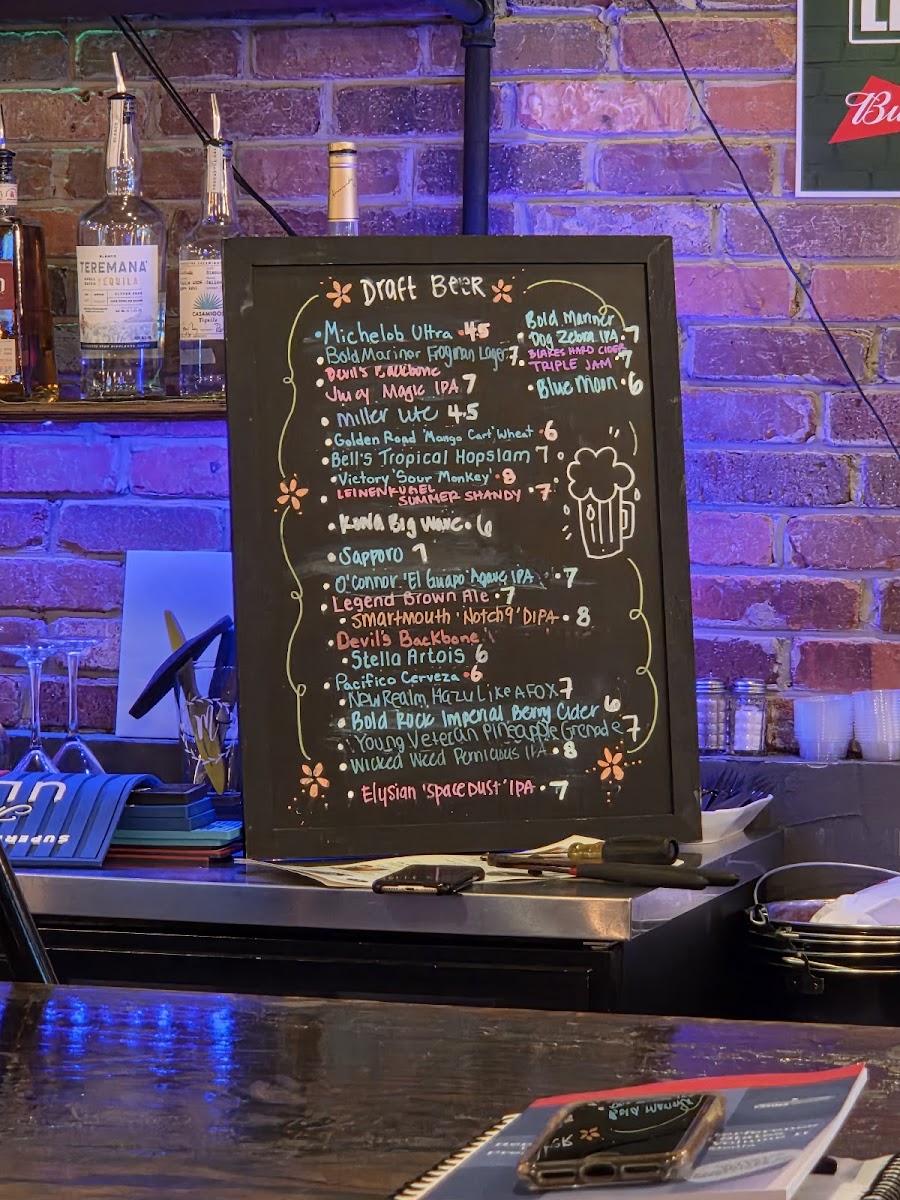 Draft Beer
• Michelob Ultra • 4.5
• Bold Marinor Frogman Lager • 7
• Devil's Backbone
Juicy Magic IPA 7
• Miller Lite 4.5
• Golden Road 'Mango Cart' Wheat • 6
• Bell's Tropical Hopslam 7
• Victory 'Sour Monkey' • 8
• LEINENKUGEL
SUMMER SHANDY • 7
• Kona Big Wave • 6
• Sapporo 7
• O'Connor 'El Guapo' Agave IPA • 7
• Legend Brown Ale • 7
• Smartmouth 'Notch9' DIPA • 8
Devil's Backbone
• Stella Artois 6
• Pacifico Cerveza • 6
• New Realm Hazy Like A FOX 7
• Bold Rock Imperial Berry Cider 6
• Young Veteran Pineapple Grenade 7
• Wicked Weed Pernicious IPA • 8
• Elysian 'Space Dust' IPA • 7
Bold Mariner
• Dog Zebra IPA • 7
• BLAKES HARD CIDER
TRIPLE JAM 7
• Blue Moon • 6
TEREMANA
TEQUILA
CASAMIGOS
Tequila
Bu
SUPER